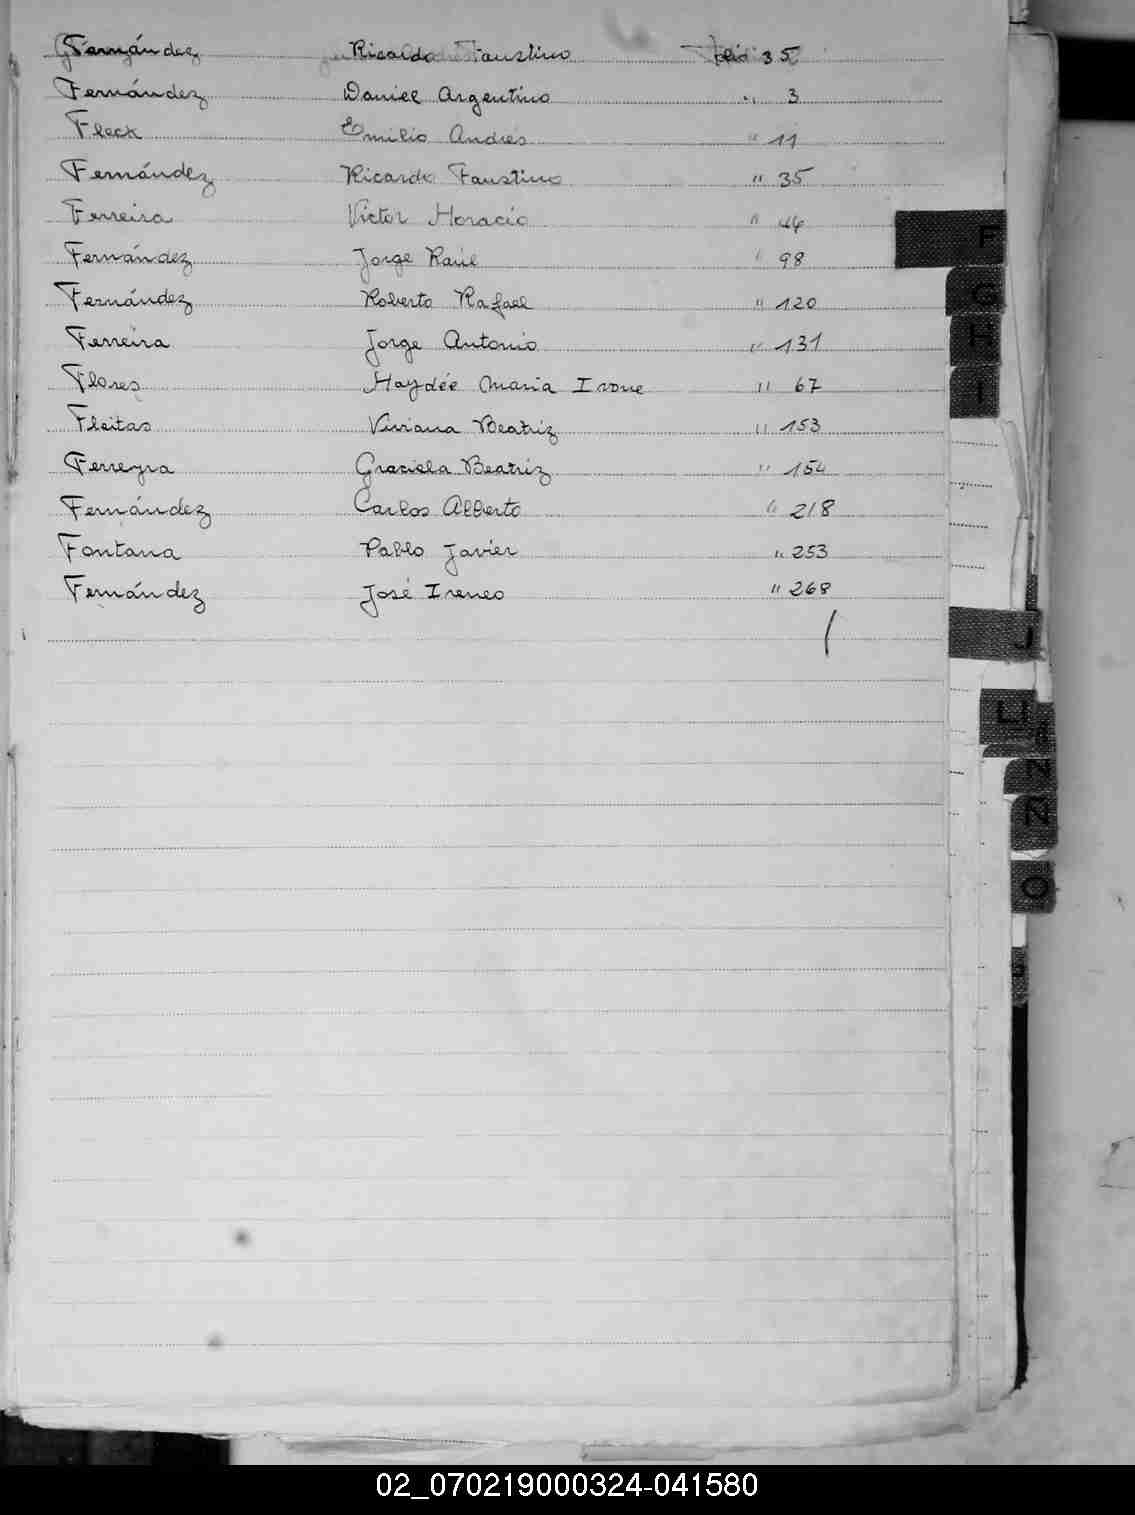 Fernández Ricardo Faustino folio 35
Fernández Daniel Argentino " 3
Fleck Emilio Andres " 11
Fernández Ricardo Faustino " 35
Ferreira Victor Horacio " 44
Fernández Jorge Raúl " 98
Fernández Roberto Rafael " 120
Ferreira Jorge Antonio " 131
Flores Haydée Maria Irone " 67
Fleitas Viviana Beatriz " 153
Ferreyra Graciela Beatriz " 154
Fernández Carlos Alberto " 218
Fontana Pablo Javier " 253
Fernández José Ireneo " 268
F
G
H
I
J
LL
N
Ñ
O
02_070219000324-041580